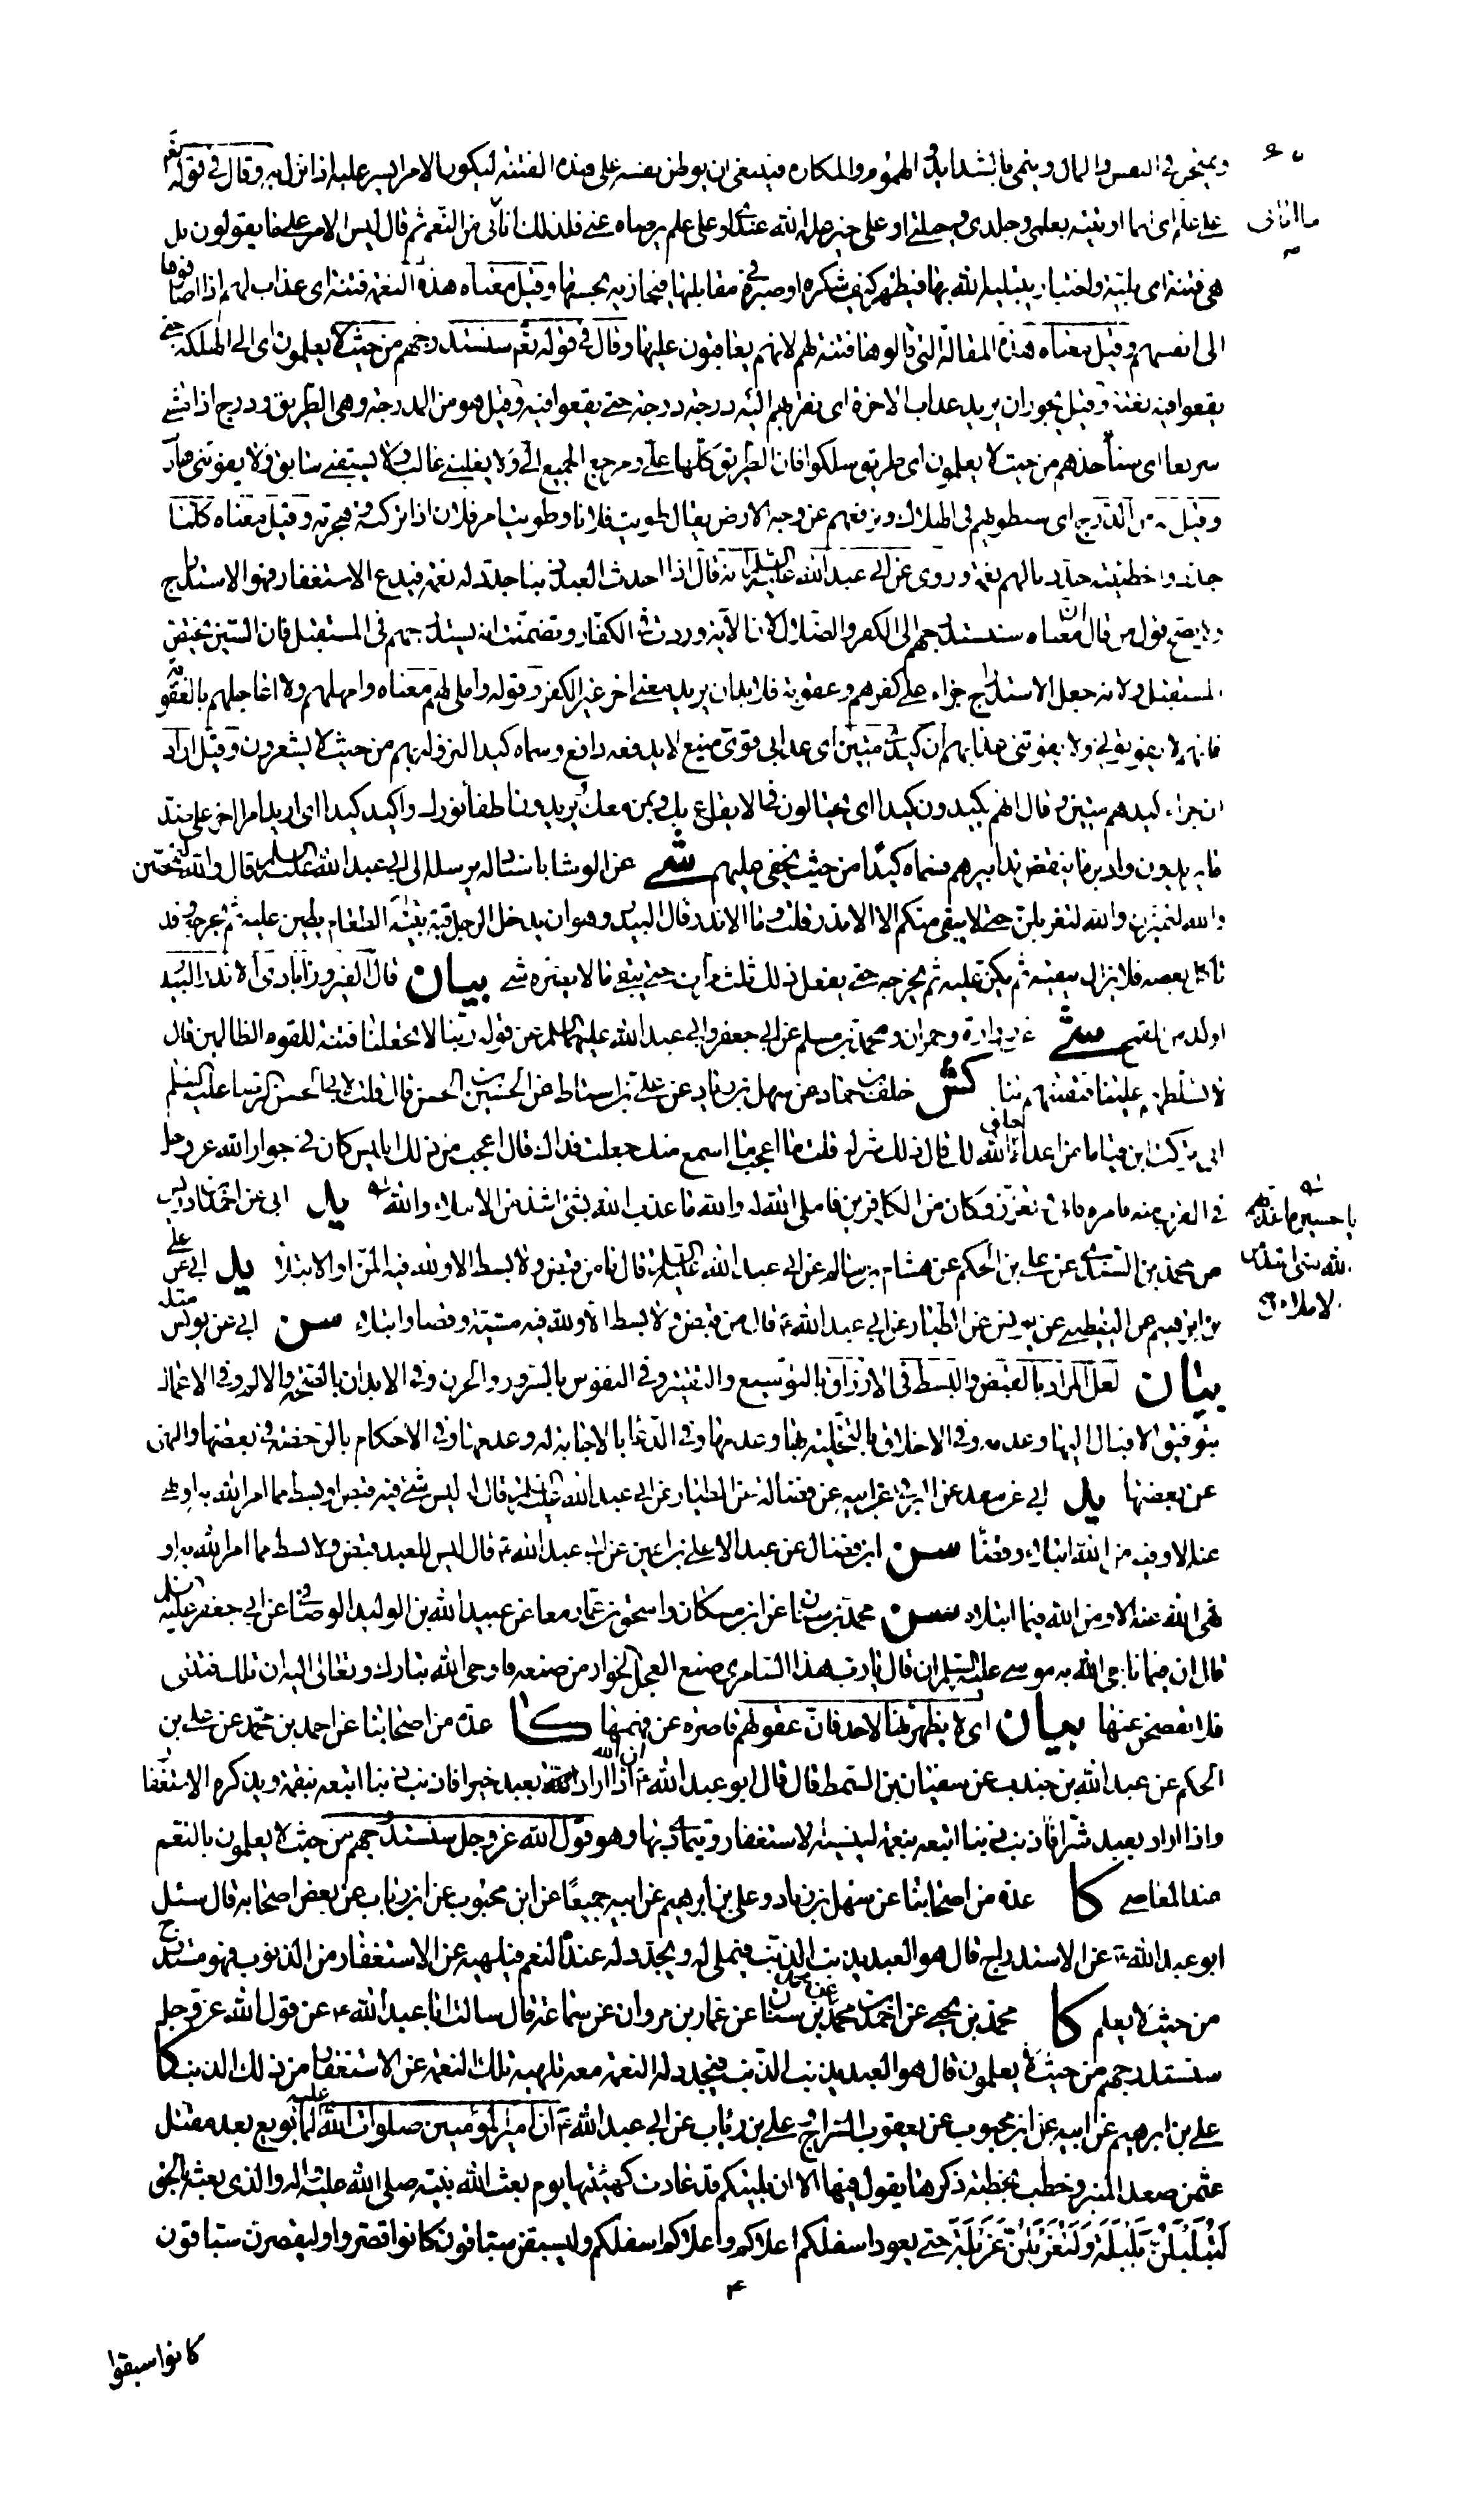 ويمتحن في النفس والمال ويتمنى بالشدايد والهموم والمكاره فينبغي ان يوطن نفسه على هذه الفتنة ليكون الامر ايسر عليه اذا نزل به وقال في قوله تعالى
على علم اى انما اوتيته بعلمي وجلدي وحيلتي او على خير علمه الله عندي او على علم يرضاه عني فلذلك اتاني من النعم ثم قال ليس الامر على ما يقولون بل
هي فتنة اى بلية واختبار يبتليه الله بها فيظهر كيف شكره او صبره في مقابلتها فيجازيه بحسبها وقيل معناه هذه النعمة فتنة اى عذاب لهم اذا اضافوها
الى انفسهم وقيل معناه هذه المقالة التي قالوها فتنة لهم لانهم يعاقبون عليها وقال في قوله تعالى سنستدرجهم من حيث لا يعلمون اى الى الهلكة حتى
يقعوا فيه بغتة وقيل يجوز ان يريد عذاب الاخرة اى نقربهم اليه درجة درجة حتى يقعوا فيه وقيل هو من المدرجة وهي الطريق ودرج اذا مشى
سريعا اى سنأخذهم من حيث لا يعلمون اى طريق سلكوا فان الطريق كلها علي ومرجع الجميع الي ولا يغلبني غالب ولا يسبقني سابق ولا يفوتني هارب
وقيل من الدرج اى سنطويهم في الهلاك ونرفعهم عن وجه الارض يقال طويت فلانا وطويت امر فلان اذا تركته وهجرته وقيل معناه كلما
جددوا خطيئة جددنا لهم نعمة وروى عن ابي عبد الله عليه السلام انه قال اذا احدث العبد ذنبا جدد له نعمة فيدع الاستغفار فهو الاستدراج
ولا يصح قول من قال ان معناه سنستدرجهم الى الكفر والضلال لان الآية وردت في الكفار وتضمنت انه يستدرجهم في المستقبل فان السين تختص
المستقبل ولانه جعل الاستدراج جزاء على كفرهم وعقوبة فلا بد ان يريد معنى اخر غير الكفر وقوله واملي لهم معناه وامهلهم ولا اعاجلهم بالعقوبة
فانهم لا يفوتوني ولا يفوتني عذابهم ان كيدي متين اى عذابي قوي منيع لا يدفعه دافع وسماه كيدا لنزوله بهم من حيث لا يشعرون وقيل اراد
ان جزاء كيدهم متين وقال انهم يكيدون كيدا اى يحتالون في الايقاع بك وبمن معك يريدون اطفاء نورك واكيد كيدا اى اريد امرا اخر على ضد
ما يريدون وادبر ما ينقض تدابيرهم فسماه كيدا من حيث يخفى عليهم شي عن الوشا باسناد له يرسله الى ابي عبد الله عليه السلام قال والله لتمحصن
والله لتميزن والله لتغربلن حتى لا يبقى منكم الا الاندر قلت وما الاندر قال البيدر وهو ان يدخل الرجل قبة بيته الطعام يطين عليه ثم يخرجه وقد
تأكل بعضه فلا يزال ينقيه ثم يكن عليه ثم يخرجه حتى يفعل ذلك ثلث مرات حتى يبقى ما لا يضره شي بيان قال الفيروزآبادى الاندر البيدر
او كدس القمح شي عن زرارة وحمران ومحمد بن مسلم عن ابي جعفر وابي عبد الله عليهما السلم عن قوله ربنا لا تجعلنا فتنة للقوم الظالمين قال
لا تسلطهم علينا فتفتنهم بنا كش خلف بن حماد عن سهل بن زياد عن علي بن اسباط عن الحسين بن الحسن قال قلت لابي الحسن الرضا عليه السلم
اني تركت ابن قياما من اعداء خلق الله لك قال ذلك شر له قلت ما اعجب ما اسمع منك جعلت فداك قال اعجب من ذلك ابليس كان في جوار الله عز وجل
في القرب منه فامره فابى وتعزز وكان من الكافرين فاملى الله له والله ما عذب الله بشئ اشد من الاملاء والله يد ابي عن احمد بن ادريس
عن محمد بن السندي عن علي بن الحكم عن هشام بن سالم عن ابي عبد الله عليه السلم قال ما من قبض ولا بسط الا ولله فيه المن او الابتلاء يد ابي عن علي
بن ابراهيم عن اليقطيني عن يونس عن الطيار عن ابي عبد الله ع قال ما من قبض ولا بسط الا ولله فيه مشية وقضاء وابتلاء سن ابي عن يونس مثله
بيان لعل المراد بالقبض والبسط في الارزاق بالتوسيع والتقتير وفي النفوس بالسرور والحزن وفي الابدان بالصحة والالم وفي الاعمال
بتوفيق الاقبال اليها وعدمه وفي الاخلاق بالتحلية بها وعدمها وفي الدعاء بالاجابة له وعدمها وفي الاحكام بالرخصة في بعضها والنهى
عن بعضها يد ابي عن سعد عن البرقي عن ابيه عن فضالة عن الطيار عن ابي عبد الله عليه السلم قال ليس شئ فيه قبض او بسط مما امر الله به او نهى
عنه الا وفيه من الله ابتلاء وقضاء سن ابن فضال عن عبد الاعلى بن اعين عن ابي عبد الله ع قال ليس للعبد قبض ولا بسط مما امر الله به او
نهى الله عنه الا ومن الله فيه ابتلاء سن محمد بن سنان عن ابن مسكان واسحق بن عمار معا عن عبيد الله بن الوليد الوصافي عن ابي جعفر عليه السلم
قال ان فيما ناجى الله به موسى عليه السلم ان قال يا رب هذا السامري صنع العجل الخوار من صنعه فاوحى الله تبارك وتعالى اليه ان تلك فتنتي
فلا تفصحن عنها بيان اى لا يظهرنها لاحد فان عقولهم قاصره عن فهمها كا عدة من اصحابنا عن احمد بن محمد عن علي بن
الحكم عن عبد الله بن جندب عن سفيان بن السمط قال قال ابو عبد الله ع ان الله اذا اراد بعبد خيرا فاذنب ذنبا اتبعه بنقمة ويذكره الاستغفار
واذا اراد بعبد شرا فاذنب ذنبا اتبعه بنعمة لينسيه الاستغفار ويتمادى بها وهو قول الله عز وجل سنستدرجهم من حيث لا يعلمون بالنعم
عند المعاصي كا عدة من اصحابنا عن سهل بن زياد وعلي بن ابراهيم عن ابيه جميعا عن ابن محبوب عن ابن رئاب عن بعض اصحابه قال سئل
ابو عبد الله ع عن الاستدراج قال هو العبد يذنب الذنب فيملى له ويجدد له عندها النعم فيلهيه عن الاستغفار من الذنوب فهو مستدرج
من حيث لا يعلم كا محمد بن يحيى عن احمد بن محمد عن محمد بن سنان عن عمار بن مروان عن سماعة قال سالت ابا عبد الله ع عن قول الله عز وجل
سنستدرجهم من حيث لا يعلمون قال هو العبد يذنب الذنب فيجدد له النعمة معه تلهيه تلك النعمة عن الاستغفار من ذلك الذنب كا
علي بن ابراهيم عن ابيه عن ابن محبوب عن يعقوب السراج وعلي بن رئاب عن ابي عبد الله ع ان امير المؤمنين صلوات الله عليه لما بويع بعد مقتل
عثمن صعد المنبر وخطب بخطبة ذكرها يقول فيها الا ان بليتكم قد عادت كهيئتها يوم بعث الله نبيه صلى الله عليه واله والذى بعثه بالحق
لَتُبَلبَلُنَّ بَلبَلَةً وَلَتُغَربَلُنَّ غَربَلَةً حتى يعود اسفلكم اعلاكم واعلاكم اسفلكم وليسبقن سباقون كانوا قصروا وليقصرن سباقون
كانوا سبقوا
انما اوتيته
يا حسين ما عذب
الله بشئ اشد من
الاملاء